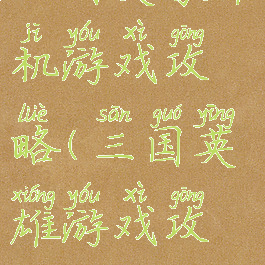 jī yóu xì gōng
机游戏攻
lüè sān guó yīng
略(三国英
xióng yóu xì gōng
雄游戏攻